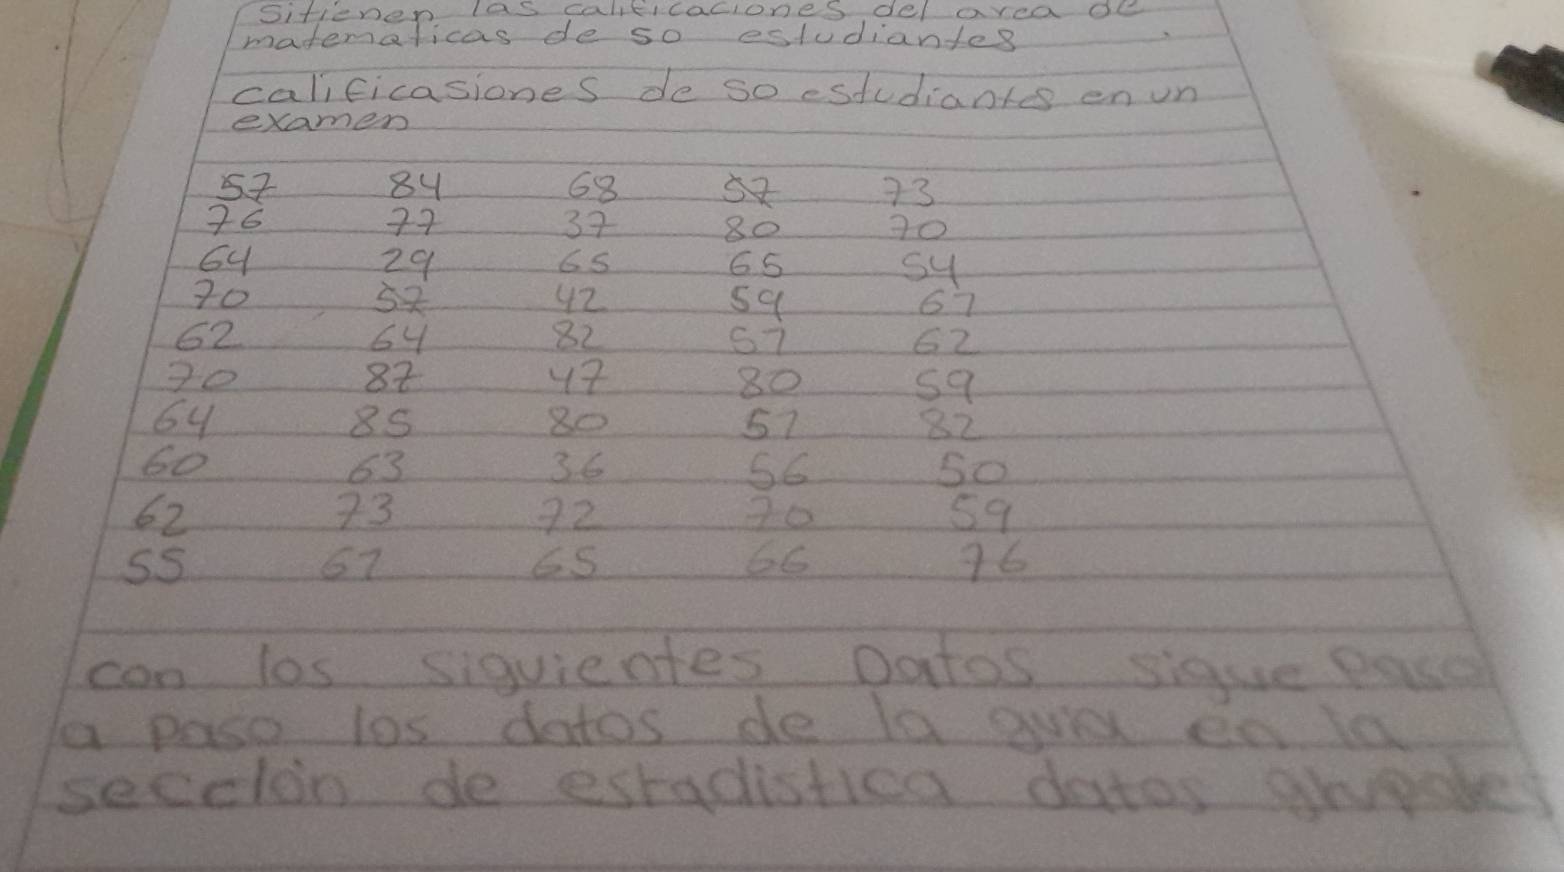 sitienen las calificaciones del area de
matematicas de 50 estudiantes
calificasiones de 50 estudiantes en un
examen
57 84 68 57 73
76 77 37 80 70
64 29 65 65 54
70 57 42 59 67
62 64 82 57 62
70 87 47 80 59
64 85 80 57 82
60 63 36 56 50
62 73 72 70 59
55 67 65 66 76
con los siguientes Datos sigue Paso
a paso los datos de la guia en la
sección de estadistica datos grupales